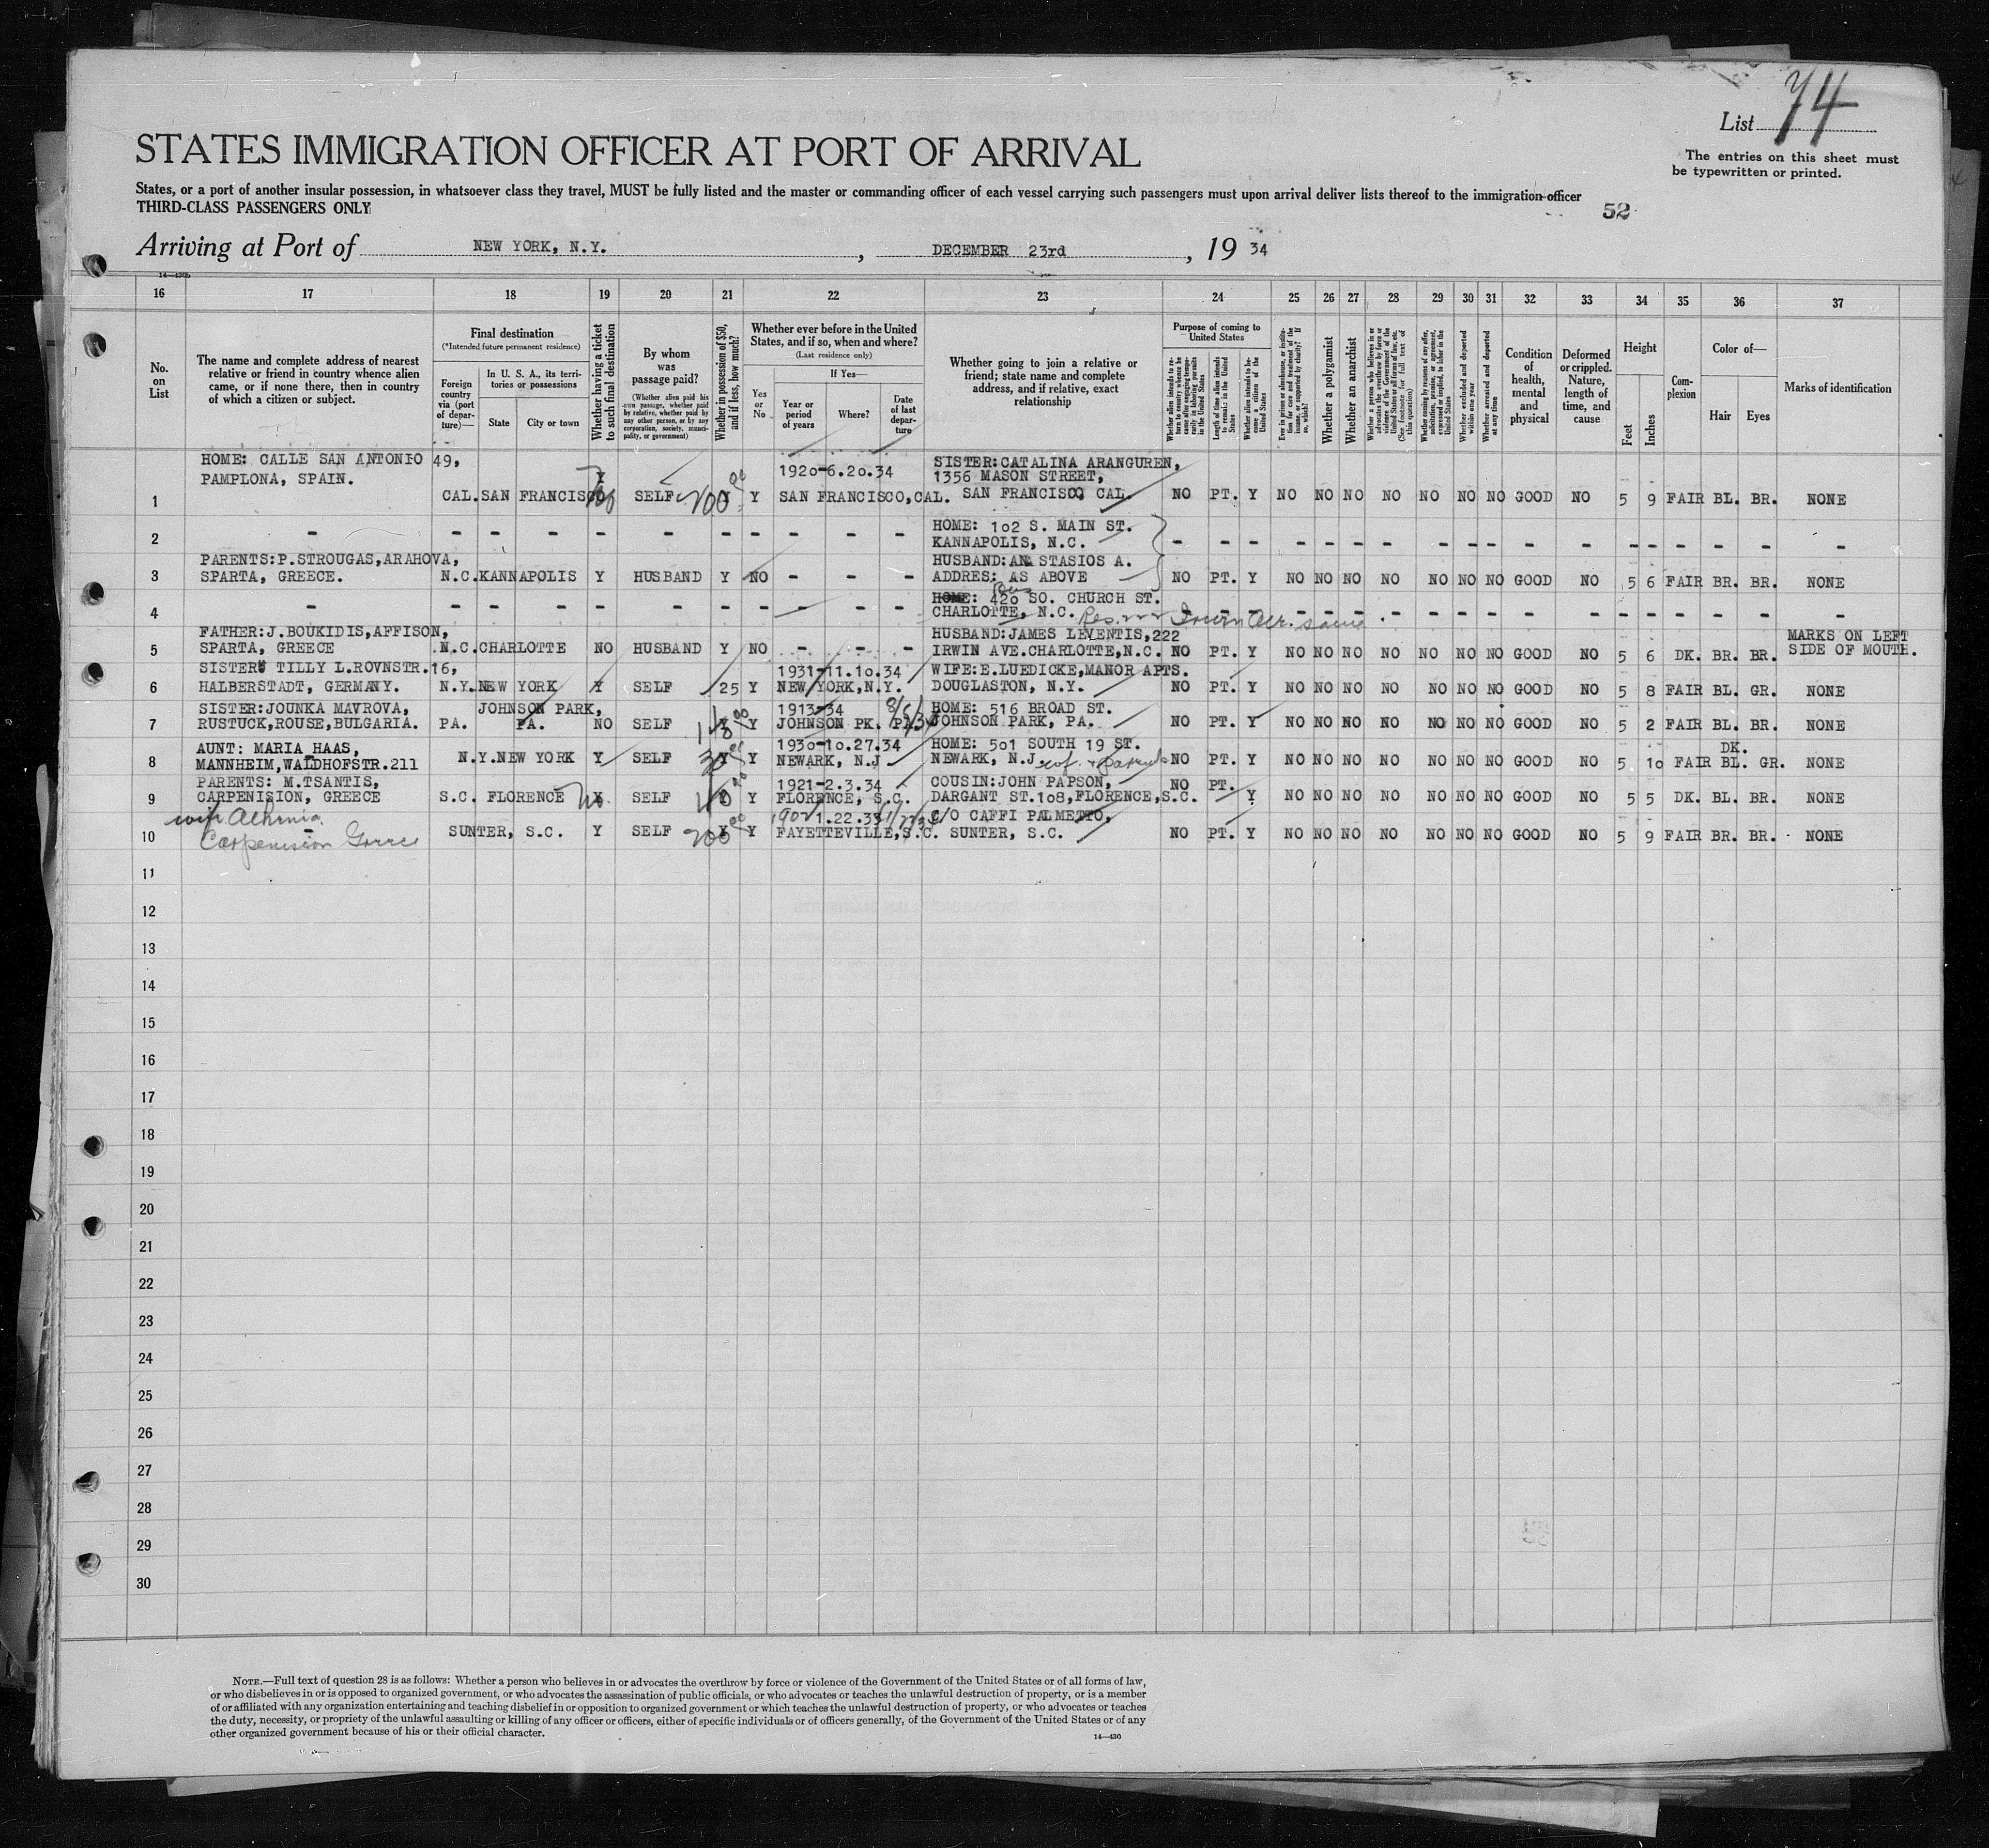 74
List
The entries on this sheet must
be typewritten or printed.
STATES IMMIGRATION OFFICER AT PORT OF ARRIVAL
States, or a port of another insular possession, in whatsoever class they travel, MUST be fully listed and the master or commanding officer of each vessel carrying such passengers must upon arrival deliver lists thereof to the immigration officer
THIRD-CLASS PASSENGERS ONLY
52
Arriving at Port of NEW YORK, N.Y., DECEMBER 23rd, 19 34
14-430b
16 17 18 19 20 21 22 23 24 25 26 27 28 29 30 31 32 33 34 35 36 37
No. on List
The name and complete address of nearest
relative or friend in country whence alien
came, or if none there, then in country
of which a citizen or subject.
Final destination
(*Intended future permanent residence)
Foreign country via (port of departure)—
In U. S. A., its territories or possessions
State
City or town
Whether having a ticket to such final destination
By whom was passage paid?
(Whether alien paid his own passage, whether paid by relative, whether paid by any other person, or by any corporation, society, municipality, or government)
Whether in possession of $50, and if less, how much?
Whether ever before in the United States, and if so, when and where?
(Last residence only)
Yes or No
If Yes—
Year or period of years
Where?
Date of last departure
Whether going to join a relative or
friend; state name and complete
address, and if relative, exact
relationship
Purpose of coming to United States
Whether alien intends to return to country whence he came after engaging temporarily in laboring pursuits in the United States
Length of time alien intends to remain in the United States
Whether alien intends to become a citizen of the United States
Ever in prison or almshouse, or institution for care and treatment of the insane, or supported by charity. If so, which?
Whether a polygamist
Whether an anarchist
Whether a person who believes in or advocates the overthrow by force or violence of the Government of the United States or all forms of law, etc. (See footnote for full text of this question)
Whether coming by reasons of any offer, solicitation, promise, or agreement, expressed or implied, to labor in the United States
Whether excluded and deported within one year
Whether arrested and deported at any time
Condition of health, mental and physical
Deformed or crippled. Nature, length of time, and cause
Height
Feet
Inches
Complexion
Color of—
Hair
Eyes
Marks of identification
HOME: CALLE SAN ANTONIO 49, 1920-6.20.34 SISTER:CATALINA ARANGUREN,
PAMPLONA, SPAIN. Y 1356 MASON STREET,
1 CAL. SAN FRANCISCO SELF 200 00 Y Y SAN FRANCISCO, CAL. SAN FRANCISCO, CAL. NO PT. Y NO NO NO NO NO NO NO GOOD NO 5 9 FAIR BL. BR. NONE
HOME: 102 S. MAIN ST.
2 - - - - - - - - - - KANNAPOLIS, N.C. - - - - - - - - - - - - - - - - - -
PARENTS:P.STROUGAS,ARAHOVA, HUSBAND:ANASTASIOS A.
3 SPARTA, GREECE. N.C. KANNAPOLIS Y HUSBAND Y NO - - - ADDRES: AS ABOVE NO PT. Y NO NO NO NO NO NO NO GOOD NO 5 6 FAIR BR. BR. NONE
HOME: Bus 420 SO. CHURCH ST.
4 - - - - - - - - - - CHARLOTTE, N.C. Res. 222 Irwin Ave. same - - - - - - - - - - - -
FATHER:J.BOUKIDIS,AFFISON, HUSBAND:JAMES LEVENTIS,222 MARKS ON LEFT
5 SPARTA, GREECE N.C. CHARLOTTE NO HUSBAND Y NO - - - IRWIN AVE.CHARLOTTE,N.C. NO PT. Y NO NO NO NO NO NO NO GOOD NO 5 6 DK. BR. BR. SIDE OF MOUTH.
SISTER TILLY L.ROVNSTR.16, 1931-11.10.34 WIFE:E.LUEDICKE,MANOR APTS.
6 HALBERSTADT, GERMANY. N.Y. NEW YORK Y SELF 25 Y NEW YORK,N.Y. DOUGLASTON, N.Y. NO PT. Y NO NO NO NO NO NO NO GOOD NO 5 8 FAIR BL. GR. NONE
SISTER:JOUNKA MAVROVA, JOHNSON PARK, 1913-34 8/6/34 HOME: 516 BROAD ST.
7 RUSTUCK,ROUSE,BULGARIA. PA. PA. NO SELF Y Y JOHNSON PK. PA. JOHNSON PARK, PA. NO PT. Y NO NO NO NO NO NO NO GOOD NO 5 2 FAIR BL. BR. NONE
AUNT: MARIA HAAS, 1930-10.27.34 HOME: 501 SOUTH 19 ST. DK.
8 MANNHEIM,WALDHOFSTR.211 N.Y. NEW YORK Y SELF 30 Y Y NEWARK, N.J NEWARK, N.J NO PT. Y NO NO NO NO NO NO NO GOOD NO 5 10 FAIR BL. GR. NONE
PARENTS: M.TSANTIS, 1921-2.3.34 COUSIN:JOHN PAPSON, NO PT.
9 CARPENISION, GREECE S.C. FLORENCE No SELF Y Y FLORENCE, S.C. DARGANT ST.108,FLORENCE,S.C. Y NO NO NO NO NO NO NO GOOD NO 5 5 DK. BL. BR. NONE
wife Athenia 1902 1.22.33 C/O CAFFI PALMETTO,
10 Carpenision SUNTER, S.C. Y SELF 200 00 Y Y FAYETTEVILLE,S.C. SUNTER, S.C. NO PT. Y NO NO NO NO NO NO NO GOOD NO 5 9 FAIR BR. BR. NONE
11
12
13
14
15
16
17
18
19
20
21
22
23
24
25
26
27
28
29
30
NOTE.—Full text of question 28 is as follows: Whether a person who believes in or advocates the overthrow by force or violence of the Government of the United States or of all forms of law,
or who disbelieves in or is opposed to organized government, or who advocates the assassination of public officials, or who advocates or teaches the unlawful destruction of property, or is a member
of or affiliated with any organization entertaining and teaching disbelief in or opposition to organized government or which teaches the unlawful destruction of property, or who advocates or teaches
the duty, necessity, or propriety of the unlawful assaulting or killing of any officer or officers, either of specific individuals or of officers generally, of the Government of the United States or of any
other organized government because of his or their official character.
14-430